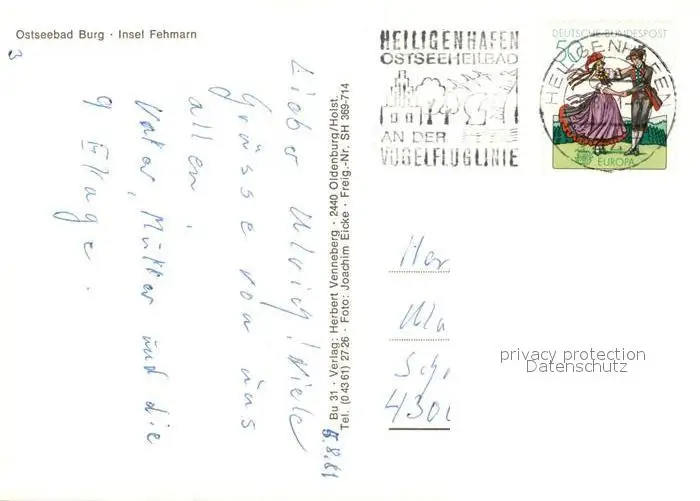 Ostseebad Burg · Insel Fehmarn
3
Lieber Ulrich! Viele
Grüsse von uns
allen!
Vater, Mutter und die
9 Etage.
5.8.81
Bu 31 · Verlag: Herbert Venneberg · 2440 Oldenburg/Holst.
Tel. (0 43 61) 27 26 · Foto: Joachim Eicke · Freig.-Nr. SH 369-714
HEILIGENHAFEN
OSTSEEHEILBAD
AN DER
VOGELFLUGLINIE
DEUTSCHE BUNDESPOST
50
HEILIGENHAFEN
EUROPA
Her
Ul
Sch
430
privacy protection
Datenschutz